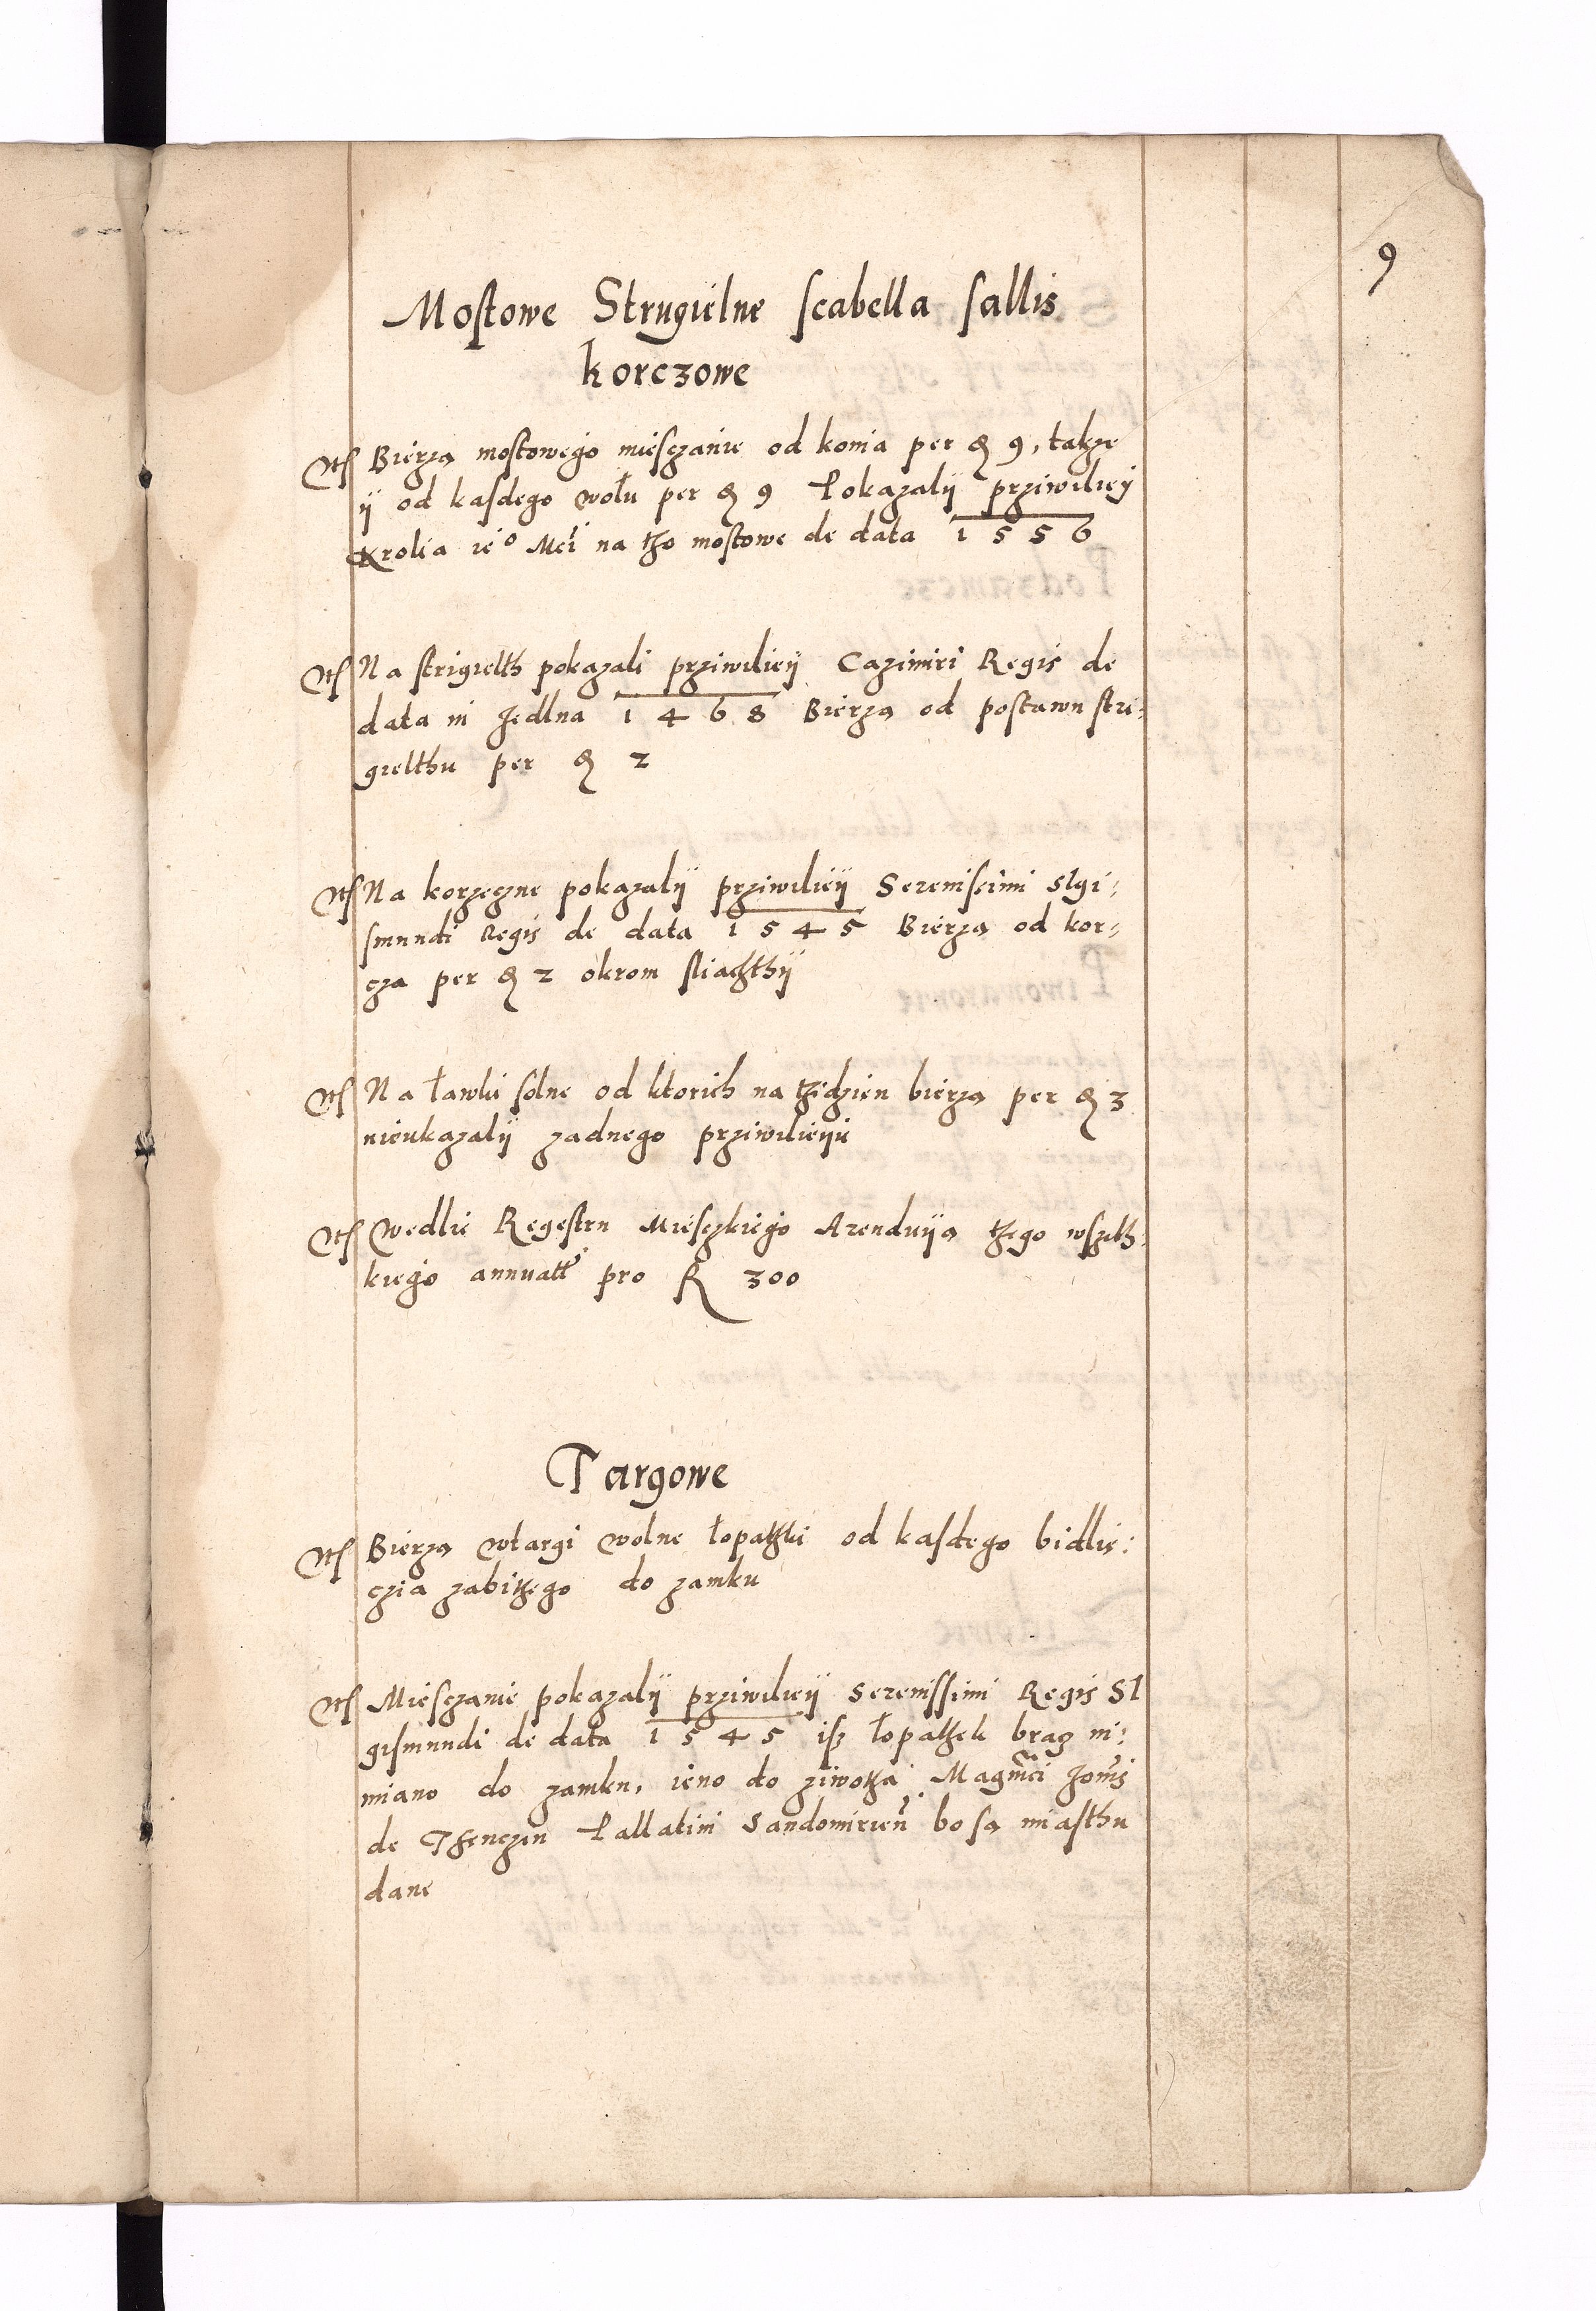 9
Mostowe Strugielne scabella sallis
korczowe
Itē Bierzą mostowego miesczanie od konia per ₰ 9, takze
ÿ od kasdego wołu per ₰ 9 Pokazalÿ prziwileÿ
Krolia ie° Mći na tho mostowe de data 1556
Itē Na strigielth pokazali prziwilieÿ Cazimiri Regis de
data in Jedlna 1468 Bierzą od postawu stri:
gielthu per ₰ 2
Itē Na korzeczne pokazalÿ prziwilieÿ Serenissimi Sigi:
smundi Regis de data 1545 Bierzą od kor:
cza per ₰ 2 okrom sliachthÿ
Itē Na ławki solne od ktorich na tzidzien bierzą per ₰ 3
nieukazalÿ zadnego prziwilieÿu
Itē Wedlie Regestru Miesczkiego Arenduÿą tzego wszeth:
kiego annuatī pro R 300
Targowe
Itē Bierzą wtargi wolne łopatzki od kasdego bidlię:
czia zabitzego do zamku
Itē Miesczanie pokazalÿ prziwilieÿ Serenissimi Regis Si
gismundi de data 1545 isz łopatzek bracz ni:
miano do zamku, ieno do ziwotza Magm̃ci Joañis
de Thenczen Pallatini Sandomirieñ bo są miasthu
dane